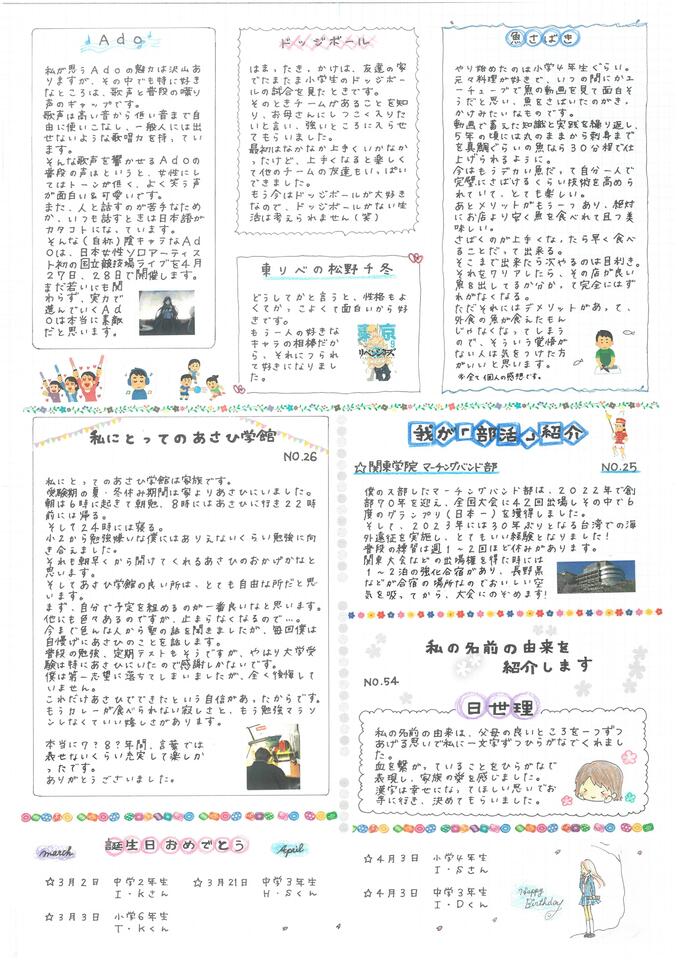 Ado
私が思うAdoの魅力は沢山あ
りますが、その中でも特に好き
なところは、歌声と普段の喋り
声のギャップです。
歌声は高い音から低い音まで自
由に使いこなし、一般人には出
せないような歌唱力を持ってい
ます。
そんな歌声を響かせるAdoの
普段の声はというと、女性にし
てはトーンが低く、よく笑う声
が面白い&可愛いです。
また、人と話すのが苦手なため
か、いつも話すときは日本語が
カタコトになっています。
そんな(自称)陰キャラなAd
oは、日本女性ソロアーティス
ト初の国立競技場ライブを4月
27日、28日で開催します。
まだ若いにも関
わらず、実力で
進んでいくAd
oは本当に素敵
だと思います。
ドッジボール
はまったきっかけは、友達の家
でたまたま小学生のドッジボー
ルの試合を見たときです。
そのときチームがあることを知
り、お母さんにしつこく入りた
いと言い、強いところに入らせ
てもらいました。
最初はなかなか上手くいかなか
ったけど、上手くなると楽しく
て他のチームの友達もいっぱい
できました。
もう今はドッジボールが大好き
なので、ドッジボールがない生
活は考えられません(笑)
東リベの松野千冬
どうしてかと言うと、性格もよ
くてかっこよくて面白いから好
きです。
もう一人の好きな
キャラの相棒だか
ら、それにつられ
て好きになりまし
た。
東京
リベンジャーズ
魚さばき
やり始めたのは小学4年生ぐらい。
元々料理が好きで、いつの間にかユ
ーチューブで魚の動画を見て面白そ
うだと思い、魚をさばいたのがき
かけみたいなものです。
動画で蓄えた知識と実践を繰り返し、
5年の頃には丸のままから刺身まで
を真鯛ぐらいの魚なら30分程で仕
上げられるように。
今はもうデカい魚だって自分一人で
完璧にさばけるくらい技術を高めら
れていて、とても楽しい。
あとメリットがもう一つあり、絶対
にお店より安く魚を食べれて且つ美
味しい。
さばくのが上手くなったら早く食べ
ることだって出来る。
そこまで出来たら次やるのは目利き。
それをクリアしたら、その店が良い
魚を出してるか分かって完全にはず
れがなくなる。
ただそれにはデメリットがあって、
外食の魚が食えたもん
じゃなくなってしまう
ので、そういう覚悟が
ない人は気をつけた方
がいいと思います。
※全て個人の感想です。
私にとってのあさひ学館
NO.26
私にとってのあさひ学館は家族です。
受験期の夏・冬休み期間は家よりあさひにいました。
朝は6時に起きて朝勉、8時にはあさひに行き22時
前には帰る。
そして24時には寝る。
小2から勉強嫌いな僕にはありえないくらい勉強に向
き合えました。
それも朝早くから開けてくれるあさひのおかげかなと
思います。
そしてあさひ学館の良い所は、とても自由な所だと思
います。
まず、自分で予定を組めるのが一番良いなと思います。
他にも色々あるのですが、止まらなくなるので…。
今まで色んな人から塾の話を聞きましたが、毎回僕は
自慢げにあさひのことを話します。
普段の勉強、定期テストもそうですが、やはり大学受
験は特にあさひにいたので感謝しかないです。
僕は第一志望に落ちてしまいましたが、全く後悔して
いません。
これだけあさひでできたという自信があったからです。
もうカレーが食べられない寂しさと、もう勉強マラソ
ンしなくていい嬉しさがあります。
本当に7?8?年間、言葉では
表せないくらい充実して楽しか
ったです。
ありがとうございました。
我が「部活」紹介
☆関東学院 マーチングバンド部
NO.25
僕の入部したマーチングバンド部は、2022年で創
部70年を迎え、全国大会に42回出場しその中で6
度のグランプリ(日本一)を獲得しました。
そして、2023年には30年ぶりとなる台湾での海
外遠征を実施し、とてもいい経験となりました!
普段の練習は週1~2回ほど休みがあります。
関東大会などの出場権を得た時には
1~2泊の強化合宿があり、長野県
などが合宿の場所なのでおいしい空
気を吸ってから、大会にのぞめます!
私の名前の由来を
紹介します
NO.54
日世理
私の名前の由来は、父母の良いところを一つずつ
あげる思いで私に一文字ずつひらがなでくれまし
た。
血を繋がっていることをひらがなで
表現し、家族の愛を感じました。
漢字は幸せになってほしい思いでお
寺に行き、決めてもらいました。
誕生日おめでとう
march
April
☆3月2日 中学2年生
I・Kさん
☆3月21日 中学3年生
H・Sくん
☆3月3日 小学6年生
T・Kくん
☆4月3日 小学4年生
I・Sさん
☆4月3日 中学3年生
I・Dくん
Happy
Birthday